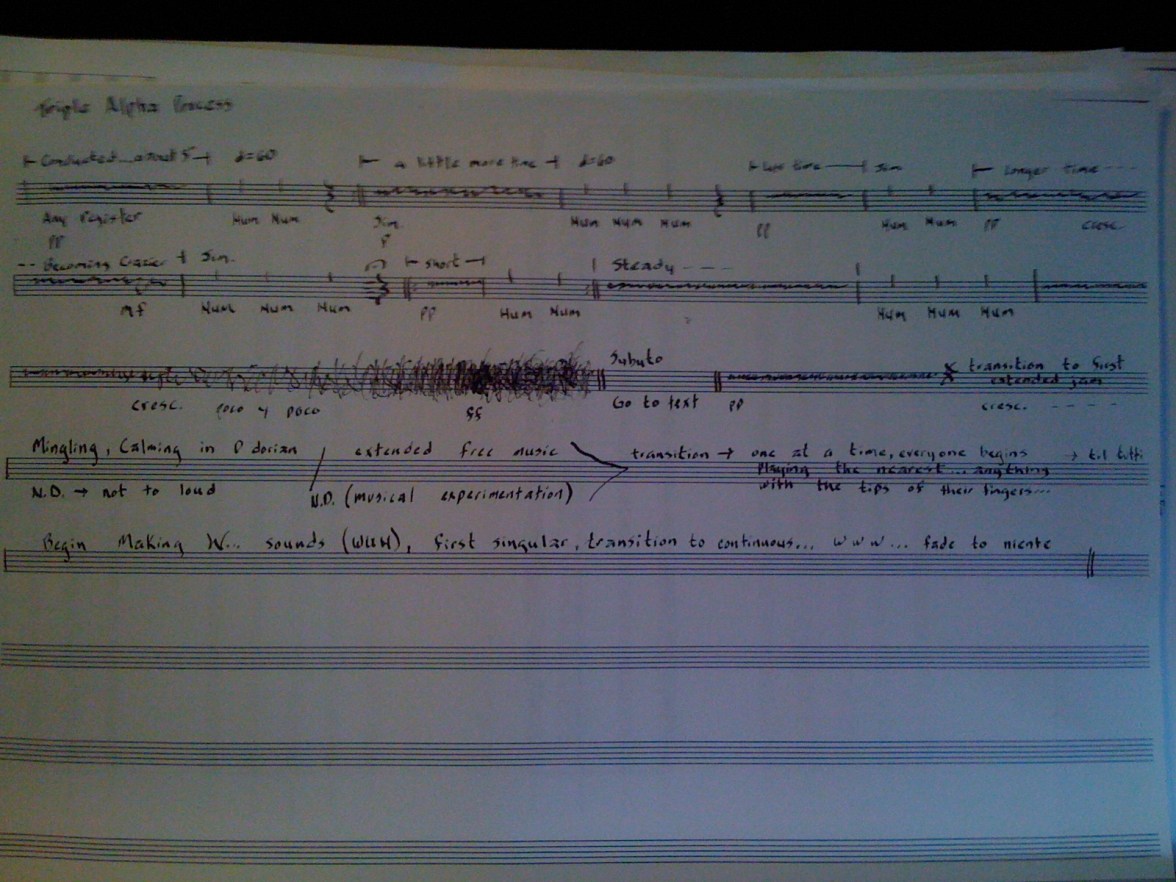 Triple Alpha Process
Conducted... about 5 ♩=60 a little more time ♩=60 less time Sim longer time - - -
Any register Hum Hum Sim. Hum Hum Hum pp Hum Hum pp cresc.
pp p
-- Becoming Crazier Sim. short Steady - - - -
mf Hum Hum Hum pp Hum Hum Hum Hum Hum
Subito transition to first
extended jam
cresc. poco y poco ff Go to text pp cresc. - - - -
Mingling, Calming in D dorian / extended free music transition → one at a time, everyone begins → til tutti
playing the nearest... anything
N.D. → not to loud N.D. (musical experimentation) with the tips of their fingers...
Begin Making W... sounds (WUH), first singular, transition to continuous... w w w ... fade to niente